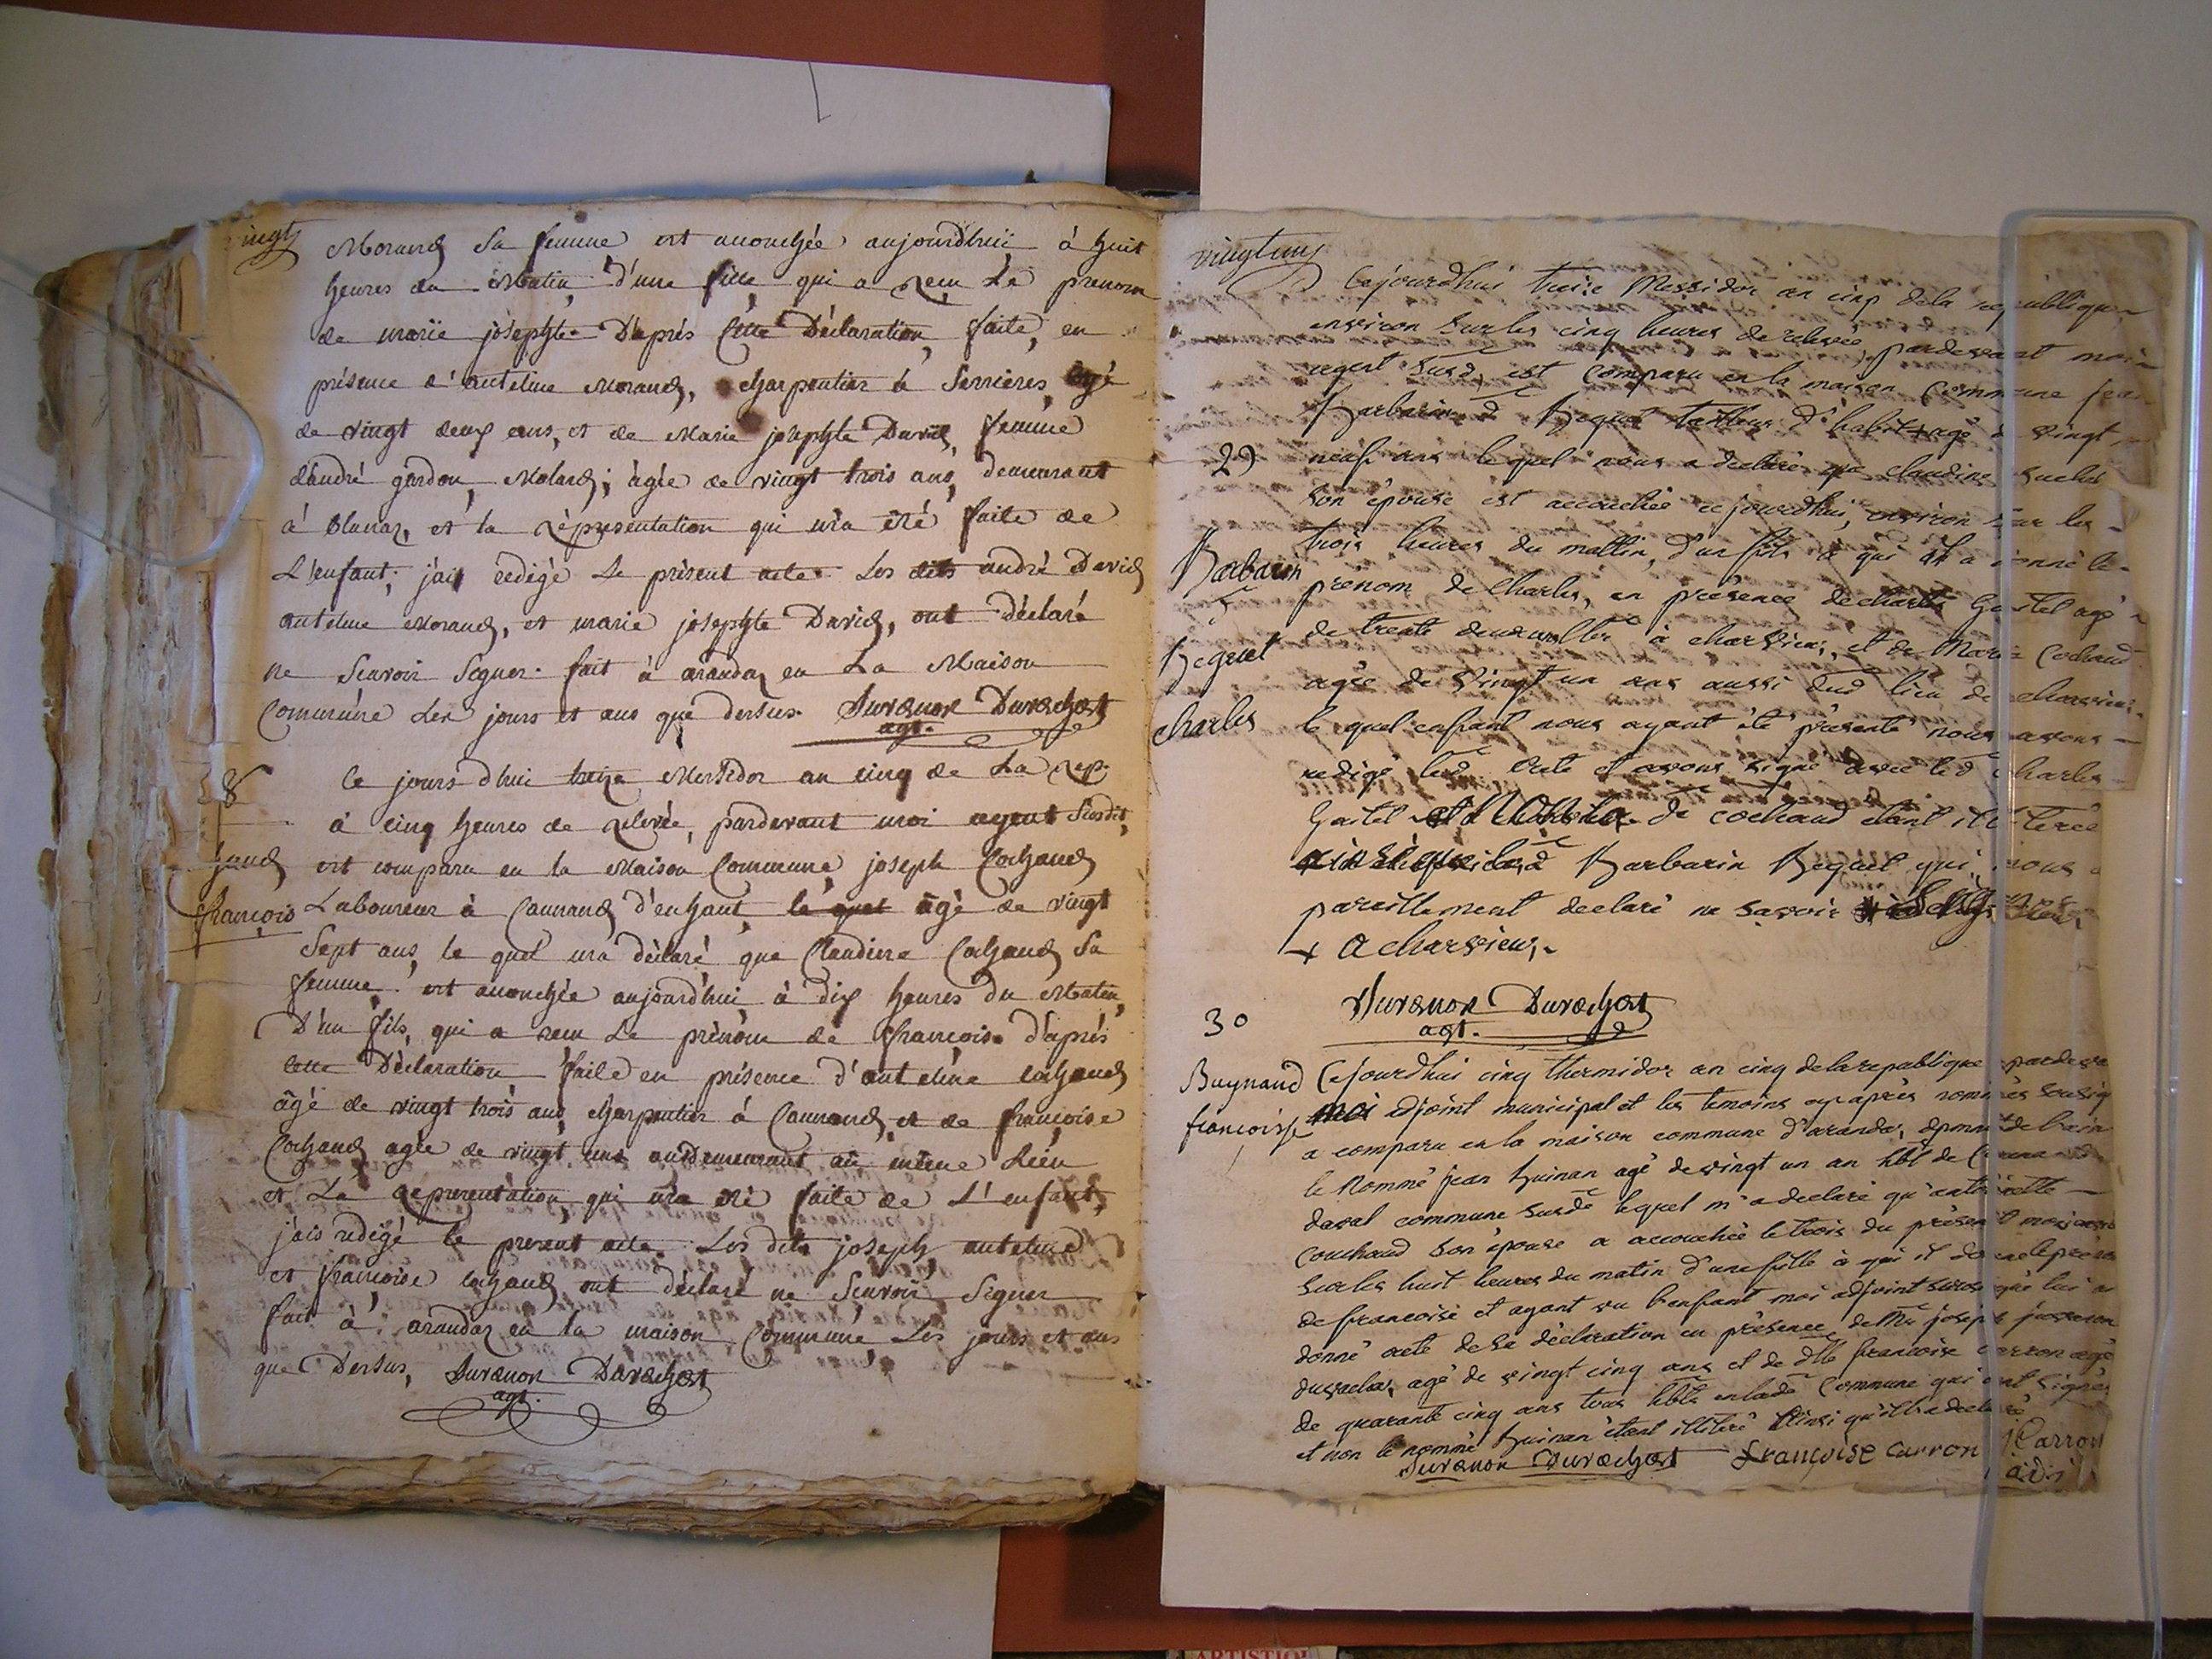 vingt
Morand Sa femme est accouchée aujourdhui à huit
heures du Matin, d'une fille qui a reçu Le prenom
de marie josephte. D'aprés Cette Déclaration, faite, en
présence d'anteline Morand, Charpentier à Serrieres, âgé
de vingt deux ans, et de Marie josephte David, femme
d'andré gardon, Molard; âgée de vingt trois ans, demeurant
à et la représentation qui m'a été faite de
L'enfant; j'ais rédigé Le présent acte. Les dits andré David
anteline Morand, et marie josephte David, ont déclaré
ne Scavoir Signer. fait à arandaz en La Maison
Commune Les jours et ans que dessus. Juvanon Durachat
agt.
8
Ce jours d'hui treize Messidor an cinq de La rep.
à cinq heures de relevée, pardevant moi agent Susdit,
hand est comparu en la Maison Commune, joseph Cochand
françois Laboureur à Caunand d'enhaut, le quel âgé de vingt
Sept ans, le quel m'a déclaré que Claudine Cochand Sa
femme, est accouchée aujourd'hui à dix heures du Maten,
D'un fils, qui a recu Le prénom de françois. d'aprés
cette Déclaration faite en présence d'anteline cochand
âgé de vingt trois ans, Charpentier à Caunand, et de françoise
Cochand agée de vingt uns ans demeurant au même Lieu
et La representation qui m'a été faite de L'enfant,
j'ais redigé le present acte. Les dits joseph anteline
et françoise cochand ont déclaré ne Scavoir Signer
fait à arandaz en la maison Commune Les jours et ans
que Dessus, Juvanon Durachat
agt.
vingt un
Cejourdhui treize Messidor an cinq dela republique
environ sur les cinq heures de relevée, pardevant moi
agent Susd. est comparu en la maison Commune
Barbarin d Bequet tailleur d'habit + agé de vingt
29 neuf ans lequel nous a declaré que claudine
son épouse est accouchée cejourdhui, environ sur les
trois heures du mattin, d'un fils à qui il a donné le
Barbarin prénom de Charles, en présence de charles Gastel agé
de trente à charvieux, et de Marie Cochand
Bequet agée de vingt un ans aussi dud lieu de charvieux
charles le quel enfant nous ayant été présenté nous avons
redigé led acte et avons signé avec led charles
Gastel de cochand étant
Barbarin Bequet qui nous a
pareillement declaré ne savoir
+ a charvieux
30 Juvanon Durachat
agt.
Buynand Cejourdhui cinq thermidor an cinq dela republique pardeva
francoisse moi adjoint municipal et les temoins cy après nommés sousig
a comparu en la maison commune d'aranda, de L'ain
le Nommé jean Guinan agé de vingt un an hbt de
daval commune susde lequel m'a declaré qu'antoinette
Couchaud son épouse a accouchée le trois du présent mois
sur les huit heures du matin d'une fille à qui il donne le prénom
de francoise et ayant vu l'enfant moi adjoint
donné acte de sa déclaration en présence de joseph
agé de vingt cinq ans et de dlle francoise carron agé
de quarante cinq ans tous hbts en lade Commune qui ont signés
et non le nommé Guinan étant illitéré ainsi qu'il l'a declaré
Juvanon Durachat Françoise carron Carron
adj